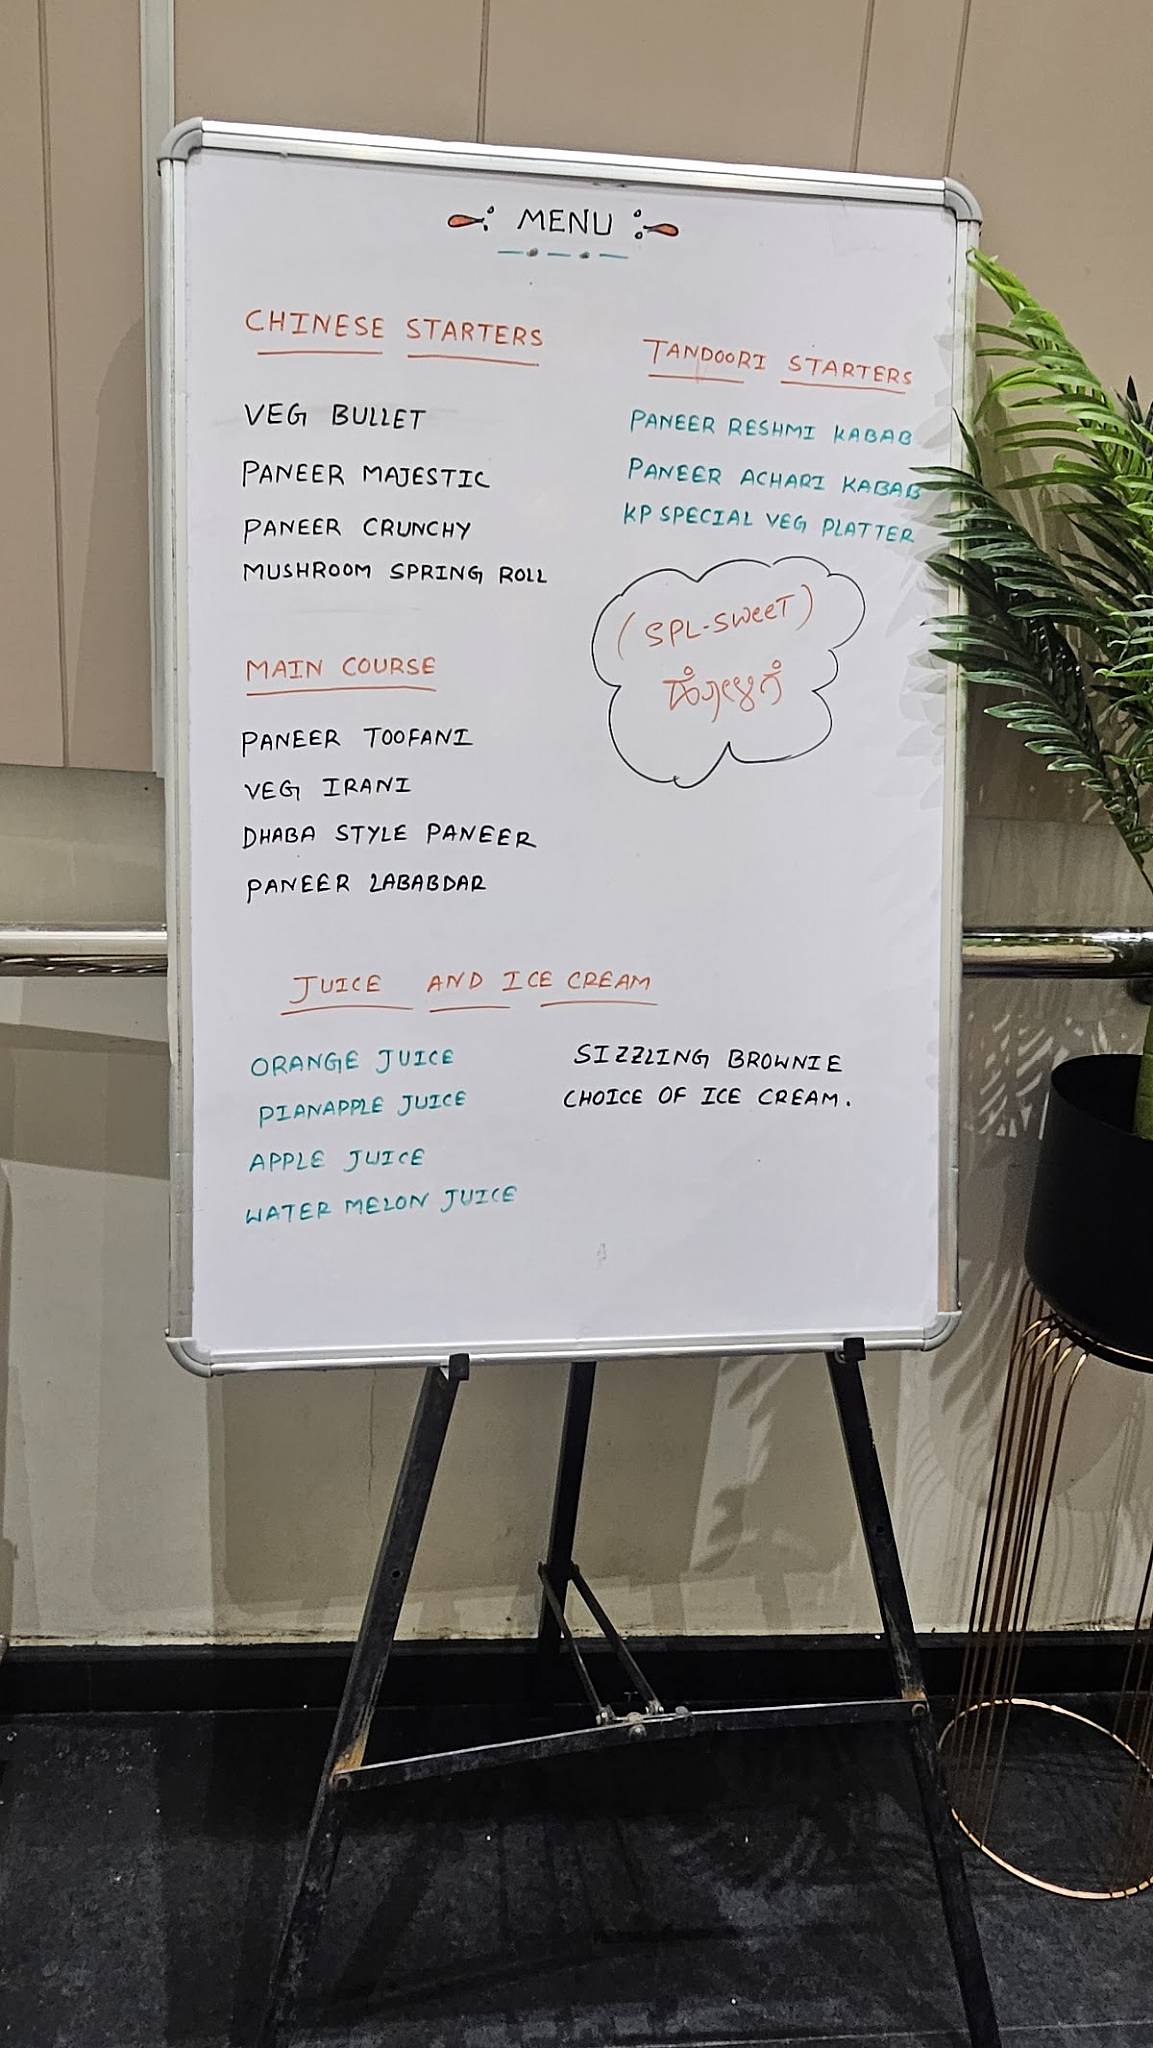 MENU
CHINESE STARTERS
VEG BULLET
PANEER MAJESTIC
PANEER CRUNCHY
MUSHROOM SPRING ROLL
TANDOORI STARTERS
PANEER RESHMI KABAB
PANEER ACHARI KABAB
KP SPECIAL VEG PLATTER
(SPL-SWEET)
ಹೋಳಿಗೆ
MAIN COURSE
PANEER TOOFANI
VEG IRANI
DHABA STYLE PANEER
PANEER LABABDAR
JUICE AND ICE CREAM
ORANGE JUICE
PIANAPPLE JUICE
APPLE JUICE
WATER MELON JUICE
SIZZLING BROWNIE
CHOICE OF ICE CREAM.